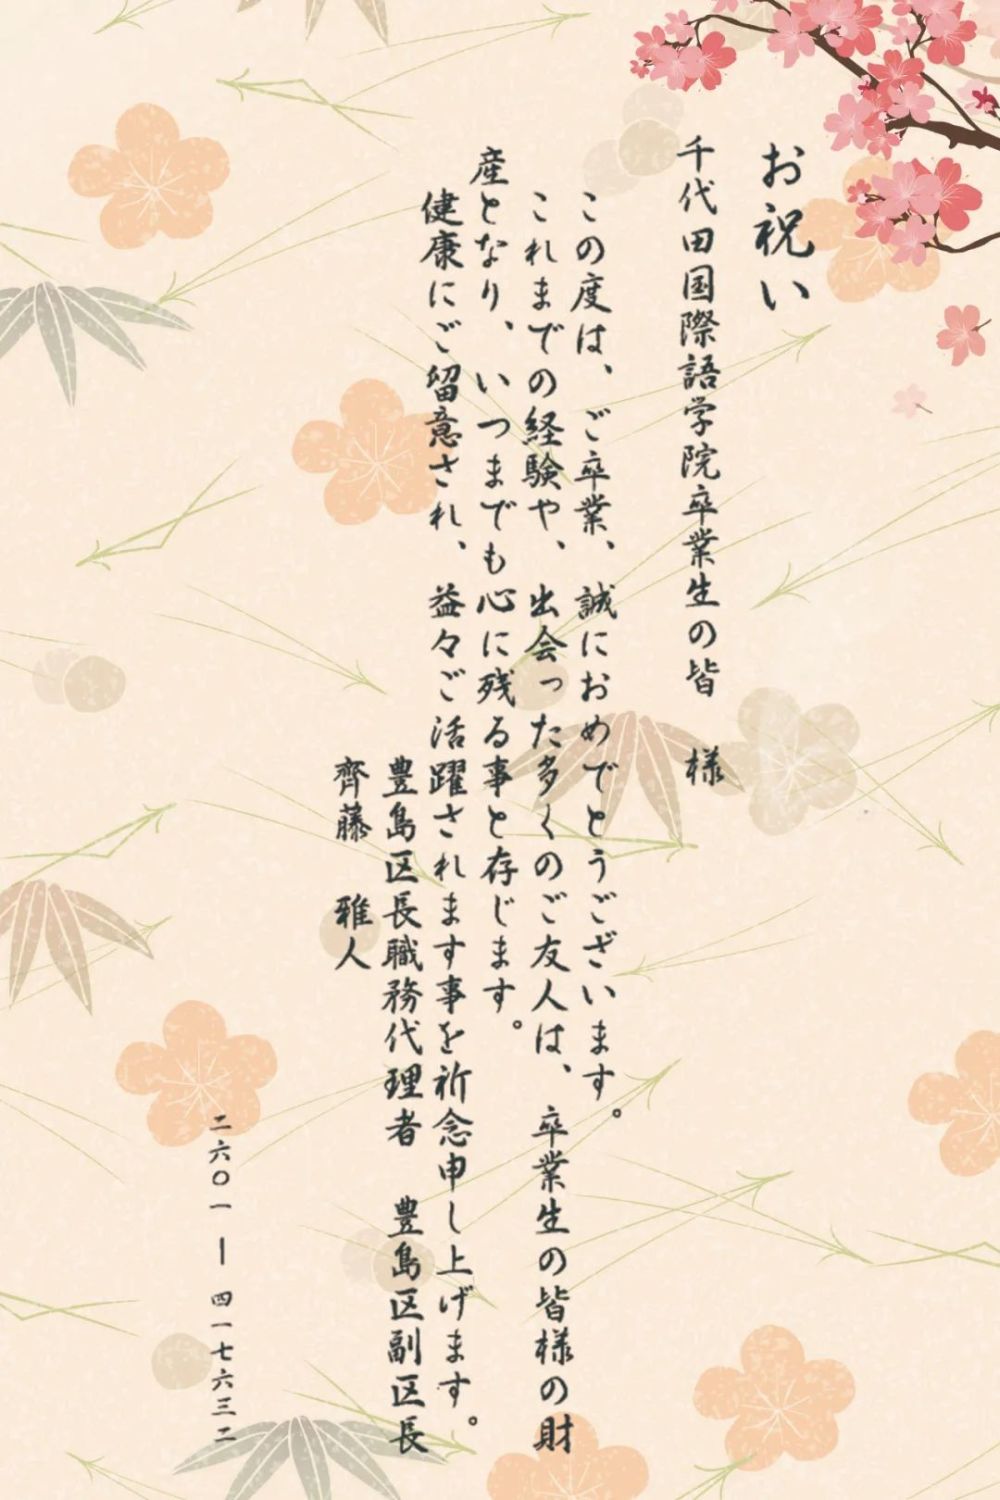 お祝い
千代田国際語学院卒業生の皆　様
この度は、ご卒業、誠におめでとうございます。
これまでの経験や、出会った多くのご友人は、卒業生の皆様の財
産となり、いつまでも心に残る事と存じます。
健康にご留意され、益々ご活躍されます事を祈念申し上げます。
豊島区長職務代理者　豊島区副区長
齊藤　雅人
二六〇一ー四一七六三二